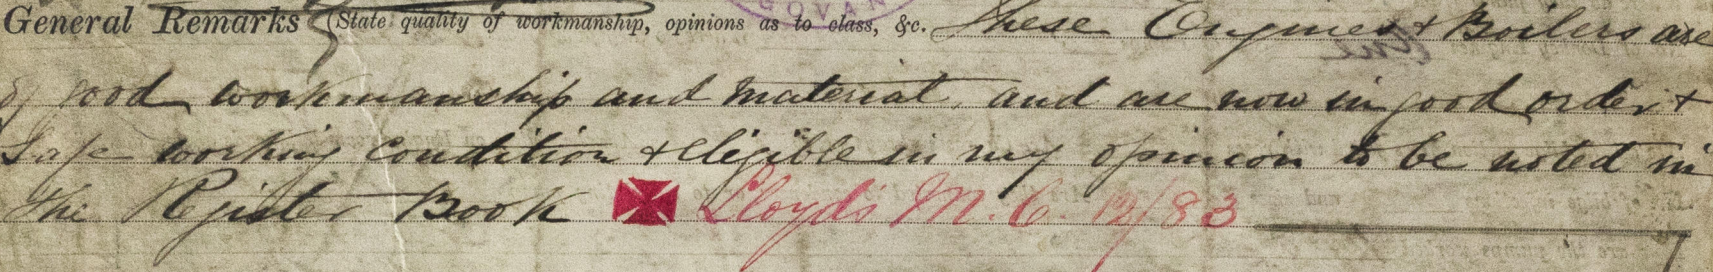 General Remarks (State quality of workmanship, opinions as to class, &c. These Engines & Boilers are
of good workmanship and material, and are now in good order &
Safe working condition & eligible in my opinion to be noted in
the Register Book ✠ Lloyd's M.C. 12/83
GOVAN